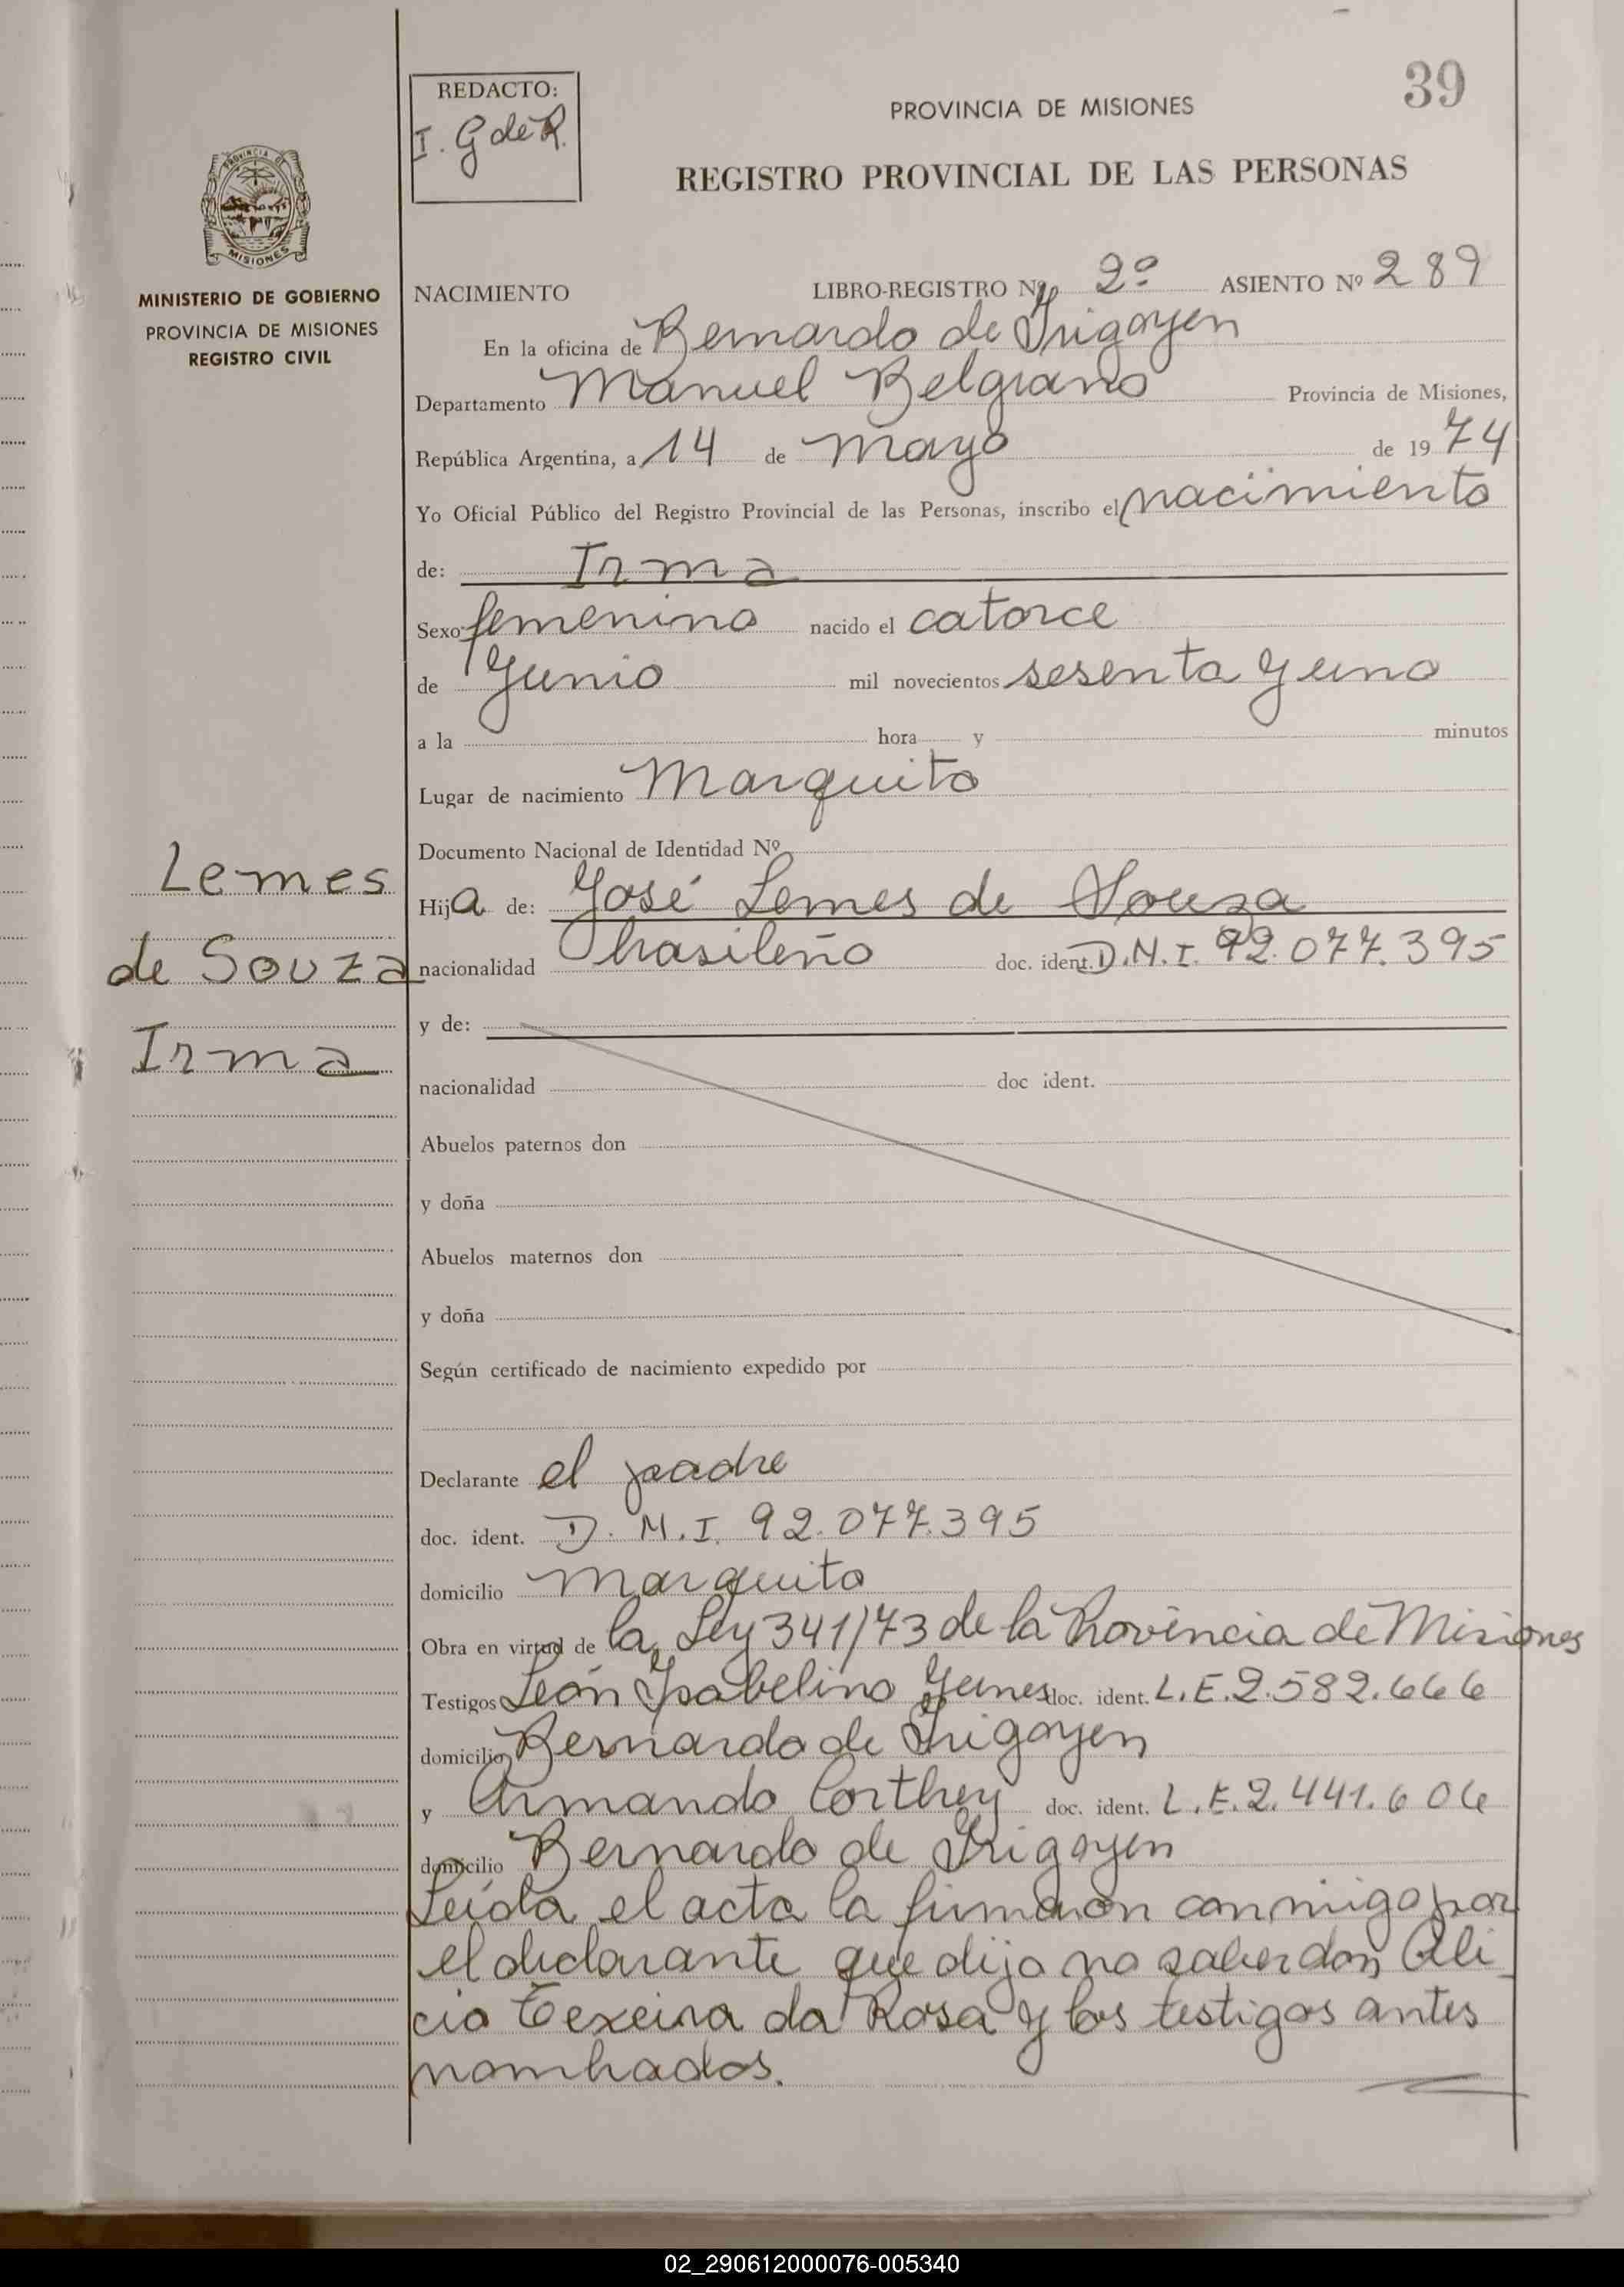 REDACTO:
I. G de R.
39
PROVINCIA DE MISIONES
REGISTRO PROVINCIAL DE LAS PERSONAS
PROVINCIA DE
MISIONES
MINISTERIO DE GOBIERNO
PROVINCIA DE MISIONES
REGISTRO CIVIL
NACIMIENTO LIBRO-REGISTRO Nº 2º ASIENTO Nº 289
En la oficina de Bernardo de Yrigoyen
Departamento Manuel Belgrano Provincia de Misiones,
República Argentina, a 14 de mayo de 1974
Yo Oficial Público del Registro Provincial de las Personas, inscribo el nacimiento
de: Irma
Sexo femenino nacido el catorce
de Junio mil novecientos sesenta y uno
a la hora y minutos
Lugar de nacimiento Marquito
Documento Nacional de Identidad Nº
Lemes
de Souza
Irma
Hija de: José Lemes de Souza
nacionalidad brasileño doc. ident. D.N.I. 92.077.395
y de:
nacionalidad doc ident.
Abuelos paternos don
y doña
Abuelos maternos don
y doña
Según certificado de nacimiento expedido por
Declarante el padre
doc. ident. D.N.I. 92.077.395
domicilio Marquito
Obra en virtud de la Ley 341/73 de la Provincia de Misiones
Testigos León Ysabelino Yunes doc. ident. L.E.2.582.666
domicilio Bernardo de Yrigoyen
y Armando Corthey doc. ident. L.E.2.441.606
domicilio Bernardo de Yrigoyen
Leída el acta la firmaron conmigo por
el declarante que dijo no saber don Ali
cio Texeira da Rosa y los testigos antes
nombrados.
02_290612000076-005340